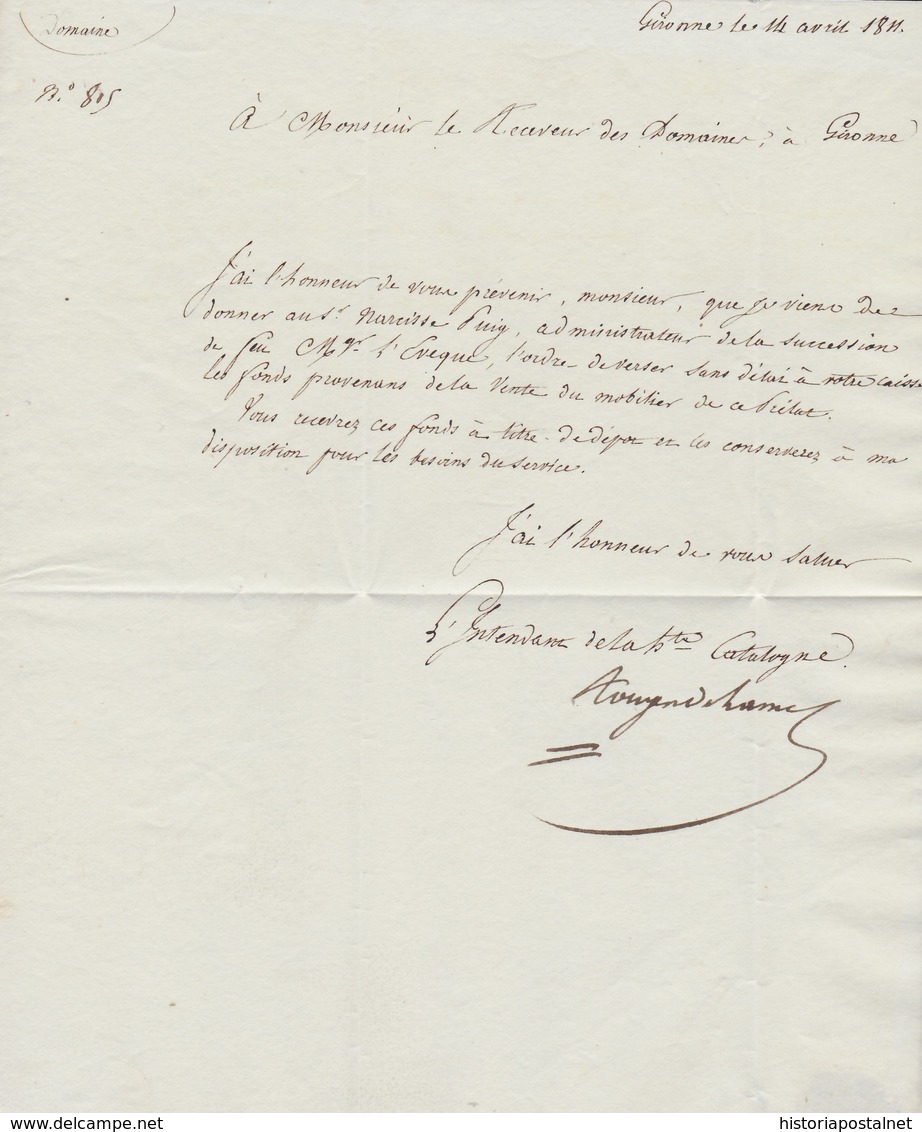 Domaine
Gironne le 14 avril 1811.
N.º 815
À Monsieur le Receveur des Domaines, à Gironne
J'ai l'honneur de vous prévenir, monsieur, que je viens de
donner au Sr. Narcisse Puig, administrateur de la succession
de feu Mgr. l'Evêque, l'ordre de verser sans délai à votre caisse
les fonds provenans de la vente du mobilier de ce Prélat.
Vous recevrez ces fonds à titre de dépot et les conserverez à ma
disposition pour les besoins du service.
J'ai l'honneur de vous saluer
L'Intendant de la hte Catalogne.
historiapostalnet